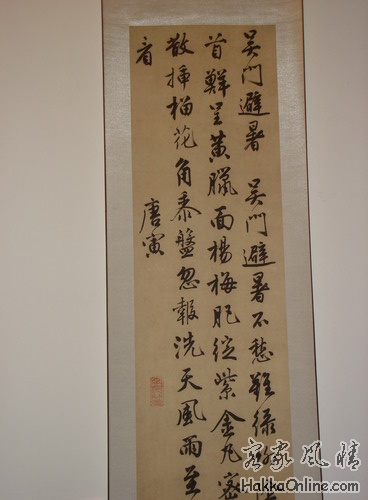 吳門避暑 吳門避暑不愁難綠
首鮮呈黃臘面楊梅肥綻紫金丸密
散插榴花角黍盤忽報洗天風雨至
看
唐寅
客家風情
HakkaOnline.com